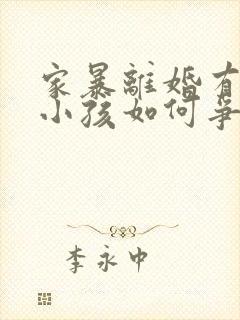 家暴離婚有
小孩如何爭
李永中